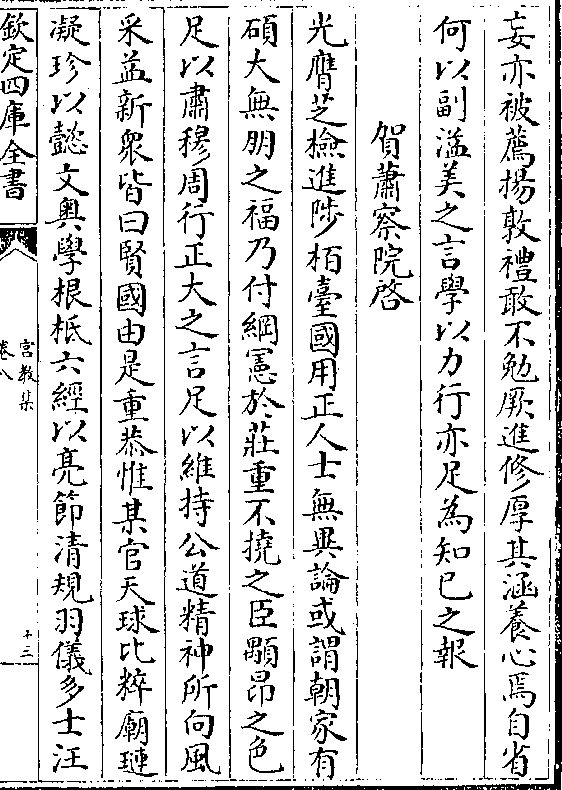 妄亦被薦揚敦禮敢不勉厥進修厚其涵養心焉自省
何以副溢美之言學以力行亦足為知已之報
賀蕭察院啓
光膺芝檢進陟栢臺國用正人士無異論或謂朝家有
碩大無朋之福乃付綱憲於莊重不撓之臣顒昂之色
足以肅穆周行正大之言足以維持公道精神所向風
采益新衆皆曰賢國由是重恭惟某官天球比粹廟璉
凝珍以懿文奥學根柢六經以亮節清規羽儀多士汪
欽定四庫全書
宫教集
卷八
十三